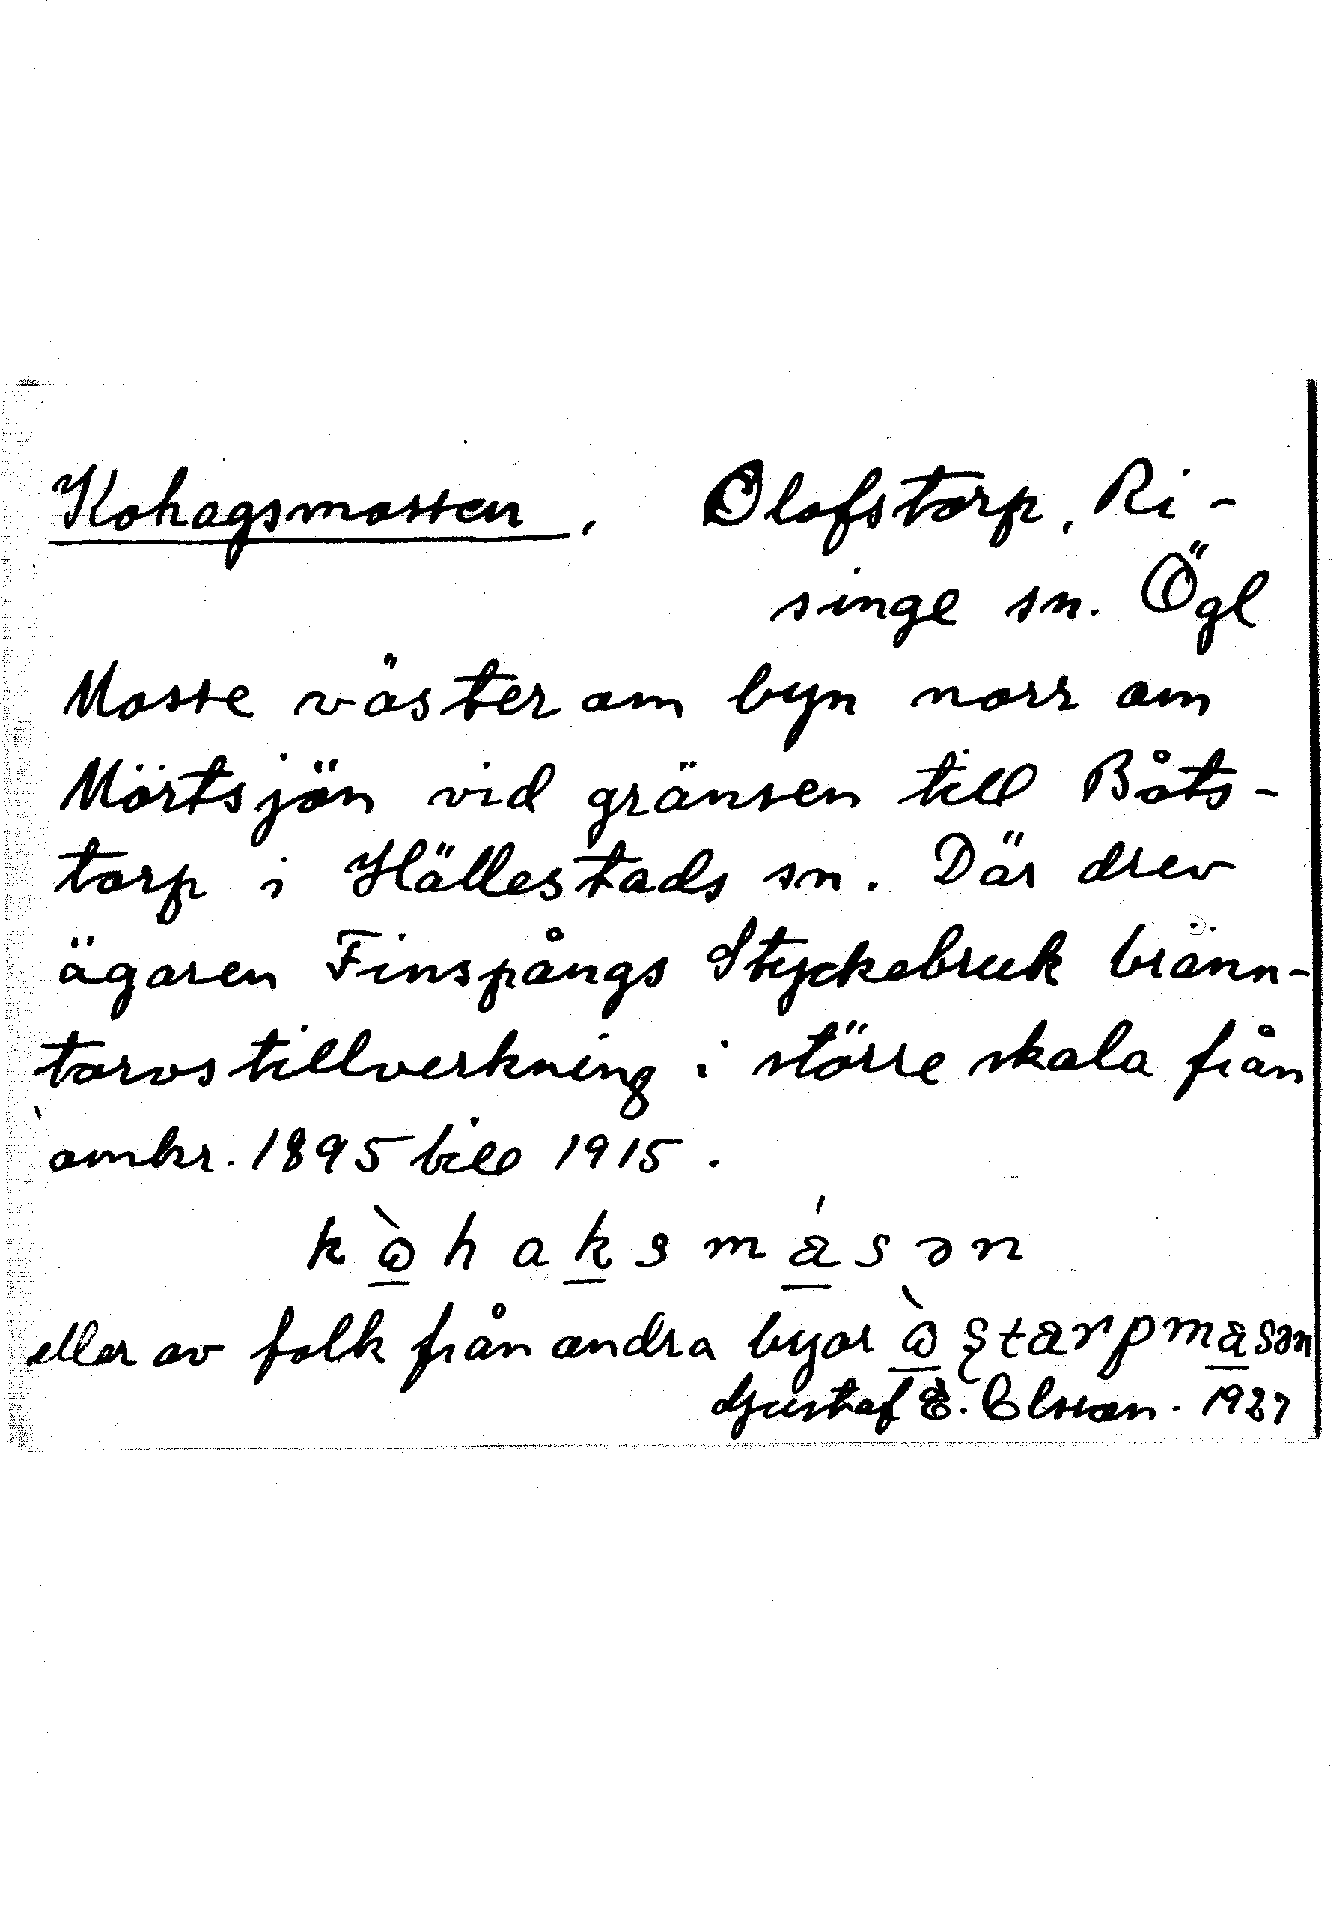 Kohagsmossen, Olofstorp, Ri-
singe sn. Ögl
Mosse väster om byn norr om
Mörtsjön vid gränsen till Båts-
torp i Hällestads sn. Där drev
ägaren Finspångs Styckebruk bränn-
torvstillverkning i större skala från
omkr. 1895 till 1915.
kòhaksmásən
eller av folk från andra byar
Gustaf E. Olsson. 1927